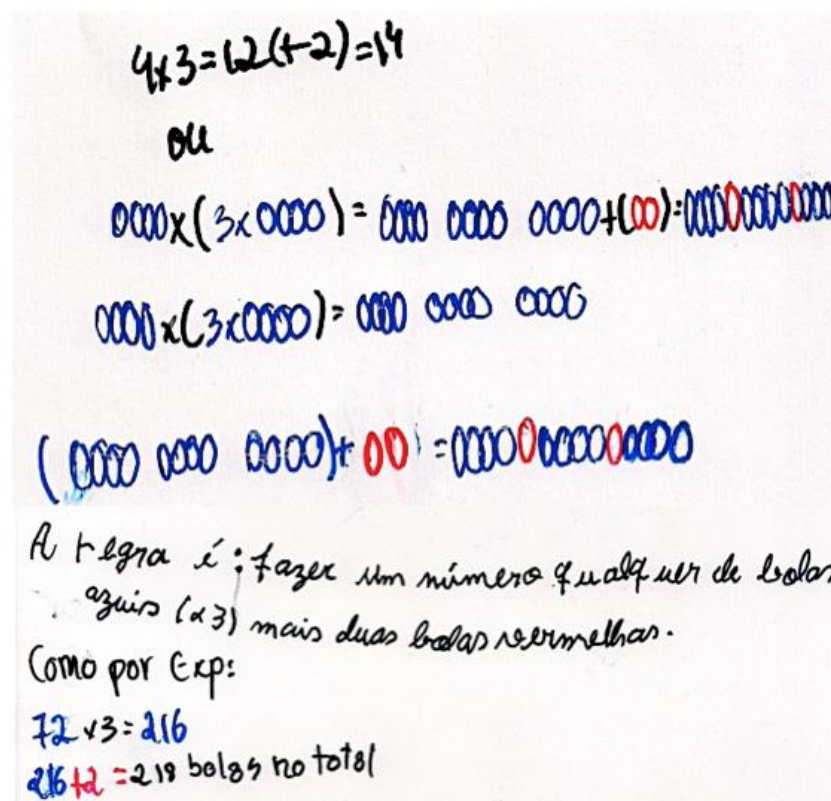 4x3=12(+2)=14
ou
0000x(3x0000)= 0000 0000 0000+(00)=00000000000000
0000x(3x0000)= 0000 0000 0000
(0000 0000 0000)+ 00 =00000000000000
A regra é: fazer um número qualquer de bolas
azuis (x3) mais duas bolas vermelhas.
Como por Exp:
72 x3=216
216+2=218 bolas no total